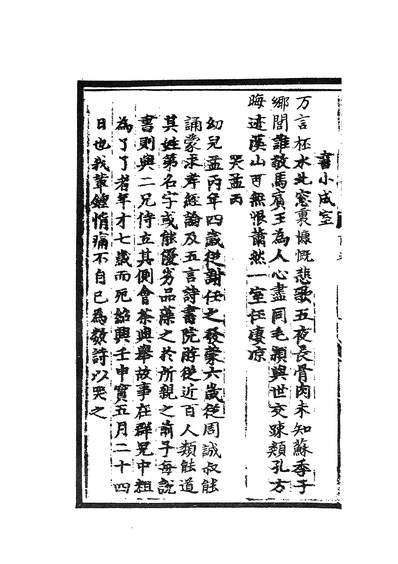 書小成室
万言杯水北窓裏慷慨悲歌五夜長骨肉未知蘇季子
鄉閭誰敬馬賔王為人心盡同毛穎與世交踈類孔方
晦迹溪山可無恨蕭然一室任凄凉
哭孟丙
幼兒孟丙年四歲從謝任之發蒙六歲從周誠叔能
誦蒙求孝經論及五言詩書院游從近百人類能道
其姓第名字或能優劣品藻之於所親之前予每說
書則與二兄侍立其側會茶與舉故事在群兒中粗
為了了者年才七歲而死紹興壬申實五月二十四
日也我輩鍾情痛不自已為數詩以哭之